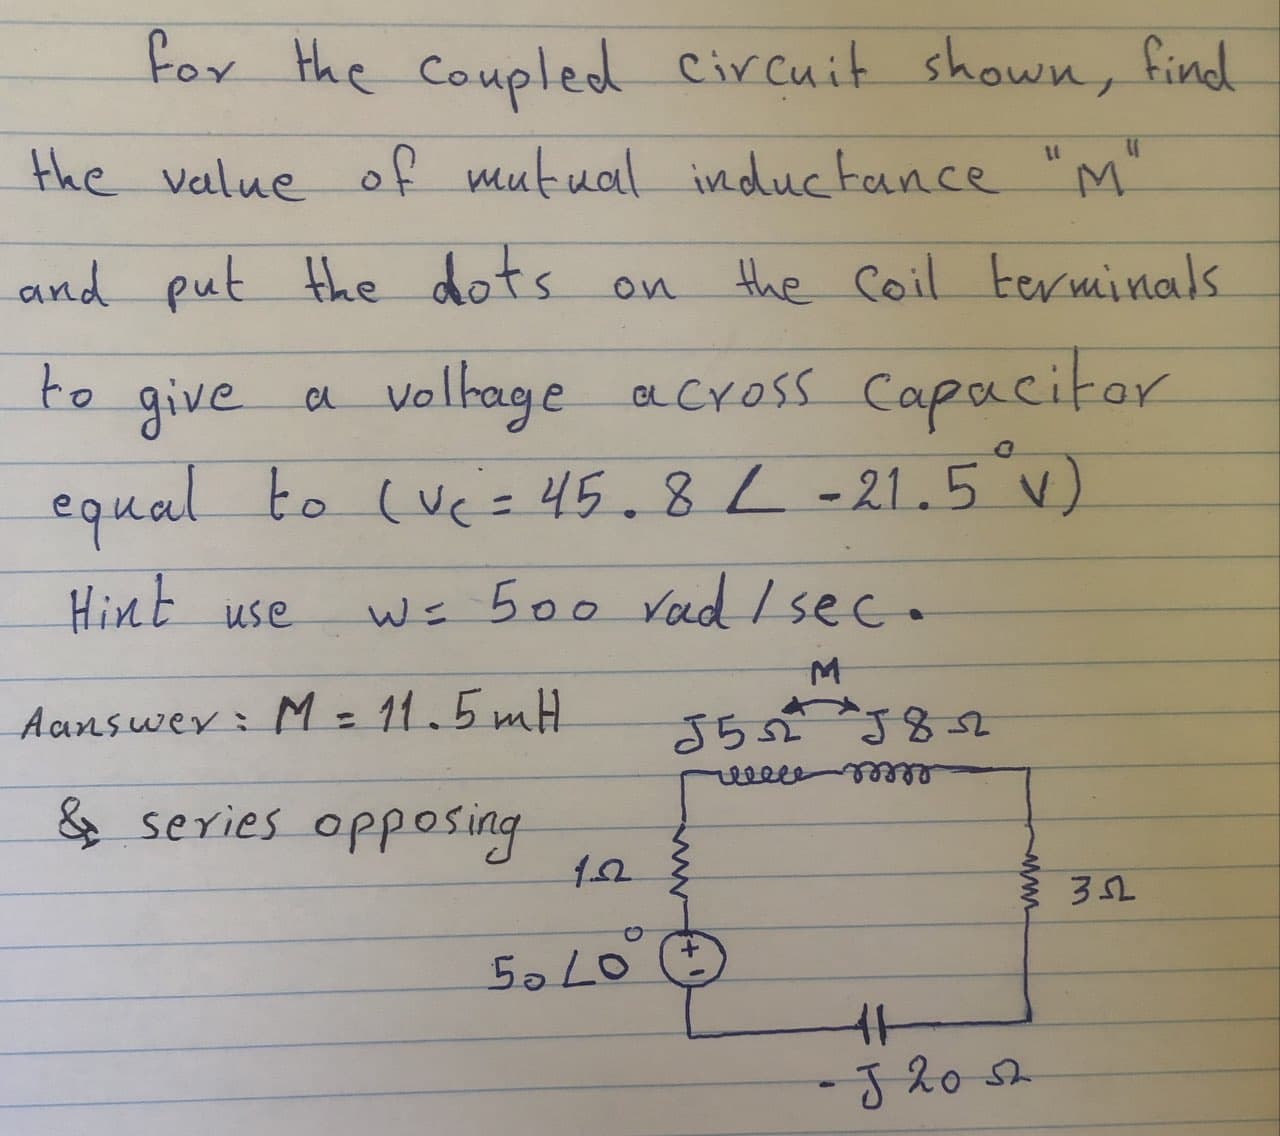 for the coupled circuit shown, find
the value of mutual inductance "M"
and put the dots on the coil terminals
to give a voltage across capacitor
equal to (Vc = 45.8 ∠ -21.5° V)
Hint use w = 500 rad / sec.
M
Aanswer: M = 11.5 mH
J5Ω J8Ω
& series opposing
1Ω
3Ω
50∠0°
+
-
-J20Ω